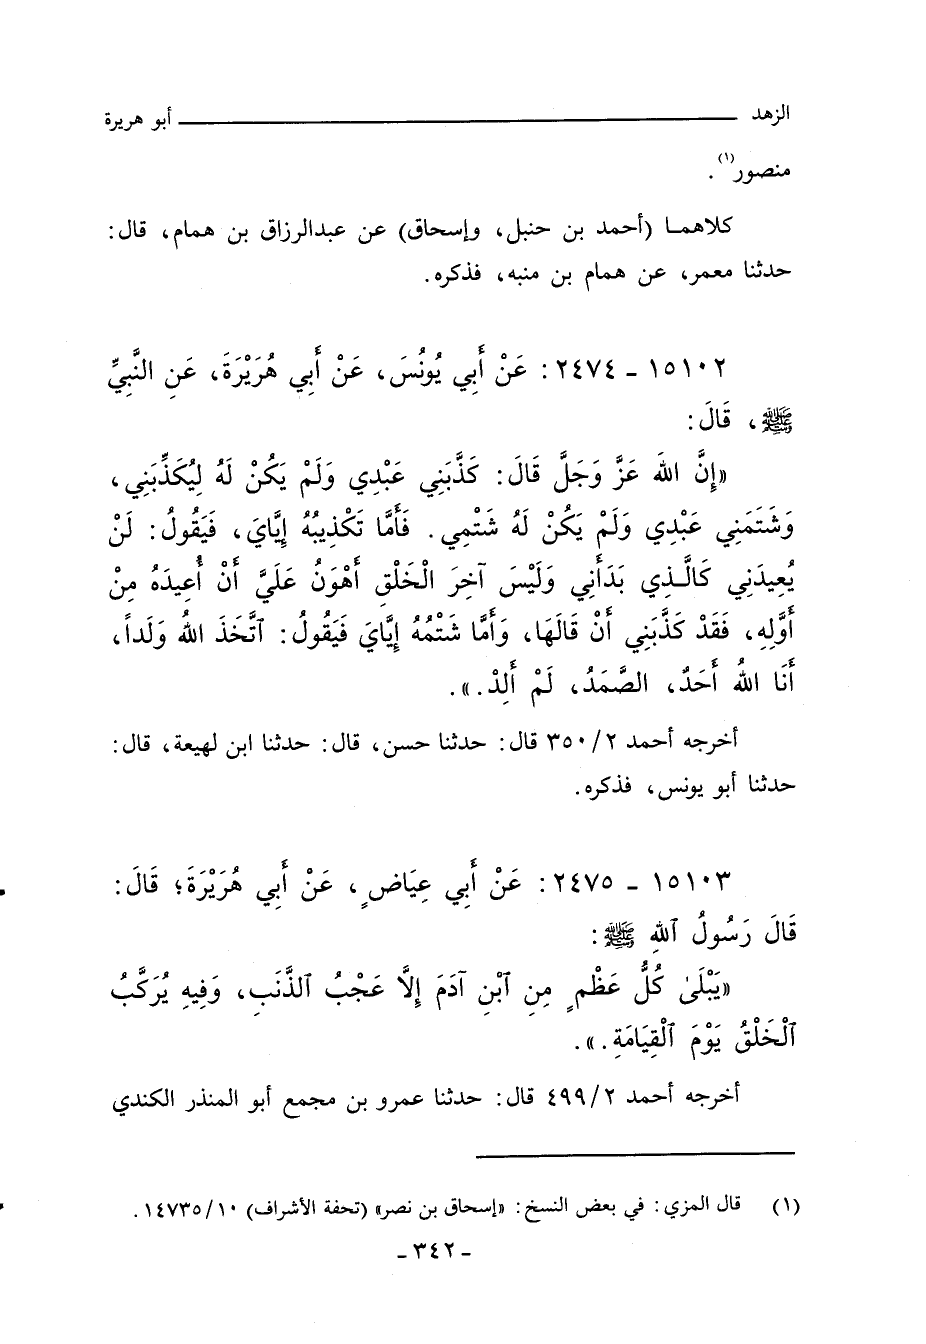 الزهد ــــــــ أبو هريرة
منصور(١).
كلاهما (أحمد بن حنبل، وإسحاق) عن عبدالرزاق بن همام، قال:
حدثنا معمر، عن همام بن منبه، فذكره.
١٥١٠٢ - ٢٤٧٤: عَنْ أَبِي يُونُسَ، عَنْ أَبِي هُرَيْرَةَ، عَنِ النَّبِيِّ
ﷺ، قَالَ:
«إِنَّ اللهَ عَزَّ وَجَلَّ قَالَ: كَذَّبَنِي عَبْدِي وَلَمْ يَكُنْ لَهُ لِيُكَذِّبَنِي،
وَشَتَمَنِي عَبْدِي وَلَمْ يَكُنْ لَهُ شَتْمِي. فَأَمَّا تَكْذِيبُهُ إِيَّايَ، فَيَقُولُ: لَنْ
يُعِيدَنِي كَالَّذِي بَدَأَنِي وَلَيْسَ آخِرَ الْخَلْقِ أَهْوَنُ عَلَيَّ أَنْ أُعِيدَهُ مِنْ
أَوَّلِهِ، فَقَدْ كَذَّبَنِي أَنْ قَالَهَا، وَأَمَّا شَتْمُهُ إِيَّايَ فَيَقُولُ: ٱتَّخَذَ اللهُ وَلَداً،
أَنَا اللهُ أَحَدٌ، الصَّمَدُ، لَمْ أَلِدْ.».
أخرجه أحمد ٢/٣٥٠ قال: حدثنا حسن، قال: حدثنا ابن لهيعة، قال:
حدثنا أبو يونس، فذكره.
١٥١٠٣ - ٢٤٧٥: عَنْ أَبِي عِيَاضٍ، عَنْ أَبِي هُرَيْرَةَ؛ قَالَ:
قَالَ رَسُولُ ٱللهِ ﷺ:
«يَبْلَىٰ كُلُّ عَظْمٍ مِنِ ٱبْنِ آدَمَ إِلَّا عَجْبُ ٱلذَّنَبِ، وَفِيهِ يُرَكَّبُ
ٱلْخَلْقُ يَوْمَ ٱلْقِيَامَةِ.».
أخرجه أحمد ٢/٤٩٩ قال: حدثنا عمرو بن مجمع أبو المنذر الكندي
(١) قال المزي: في بعض النسخ: «إسحاق بن نصر» (تحفة الأشراف) ١٠/١٤٧٣٥.
- ٣٤٢ -